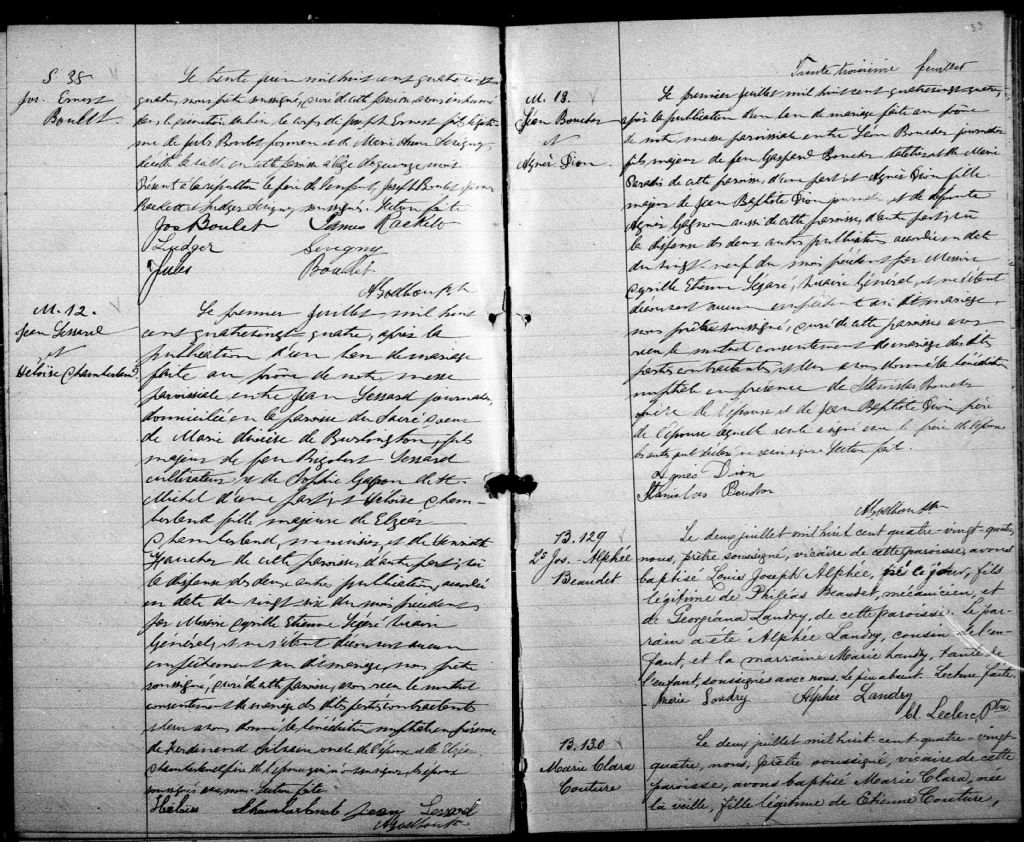 S 38
Jos. Ernest
Boulet
Le trente juin mil huit cent quatre vingt
quatre, nous prêtre soussigné, curé de cette paroisse avons inhumé
dans le cimetière le corps de Joseph Ernest fils légiti-
me de Jules Boulet et de Marie Anna Sévigny,
décédé en cette paroisse à l'âge de mois
Présent à la sépulture le père de l'enfant, Joseph Boulet, James
Rackett et Ludger Sévigny soussignés. Lecture faite
Jos Boulet James Rackett
Ludger Sevigny
Jules Boulet
M. 12.
Jean Lessard
et
Héloïse Chamberland
Le premier juillet mil huit
cent quatrevingt quatre, après la
publication d'un ban de mariage
faite au prône de notre messe
paroissiale entre Jean Lessard journalier,
domicilié en la paroisse du Sacré Coeur
de Marie diocèse de Burlington, fils
majeur de feu Rigobert Lessard
cultivateur et de Sophie Gagnon de St
Michel d'une part, et Héloïse Cham-
berland fille majeure de Elzéar
Chamberland, menuisier, et de
Faucher de cette paroisse, d'autre part, vu
la dispense des deux autres publications, accordée
en date du vingt six du mois précédent
par Messire Cyrille Etienne Légaré Vicaire
Général, et ne s'étant découvert aucun
empêchement au dit mariage, nous prêtre
soussigné, curé de cette paroisse, avons reçu le mutuel
consentement de mariage des dites parties contractantes
et leur avons donné la bénédiction nuptiale en présence
de Ferdinand Bilodeau oncle de l'époux et de Elzéar
Chamberland père de l'épouse qui n'a su signer, les époux
soussignés avec nous. Lecture faite.
Héloïse Chamberland Jean Lessard
33
Trente troisième feuillet
M. 13.
Jean Boucher
et
Agnès Dion.
Le premier juillet mil huit cent quatrevingt quatre,
après la publication d'un ban de mariage faite au prône
de notre messe paroissiale entre Jean Boucher journalier
fils majeur de feu Gaspard Boucher et de Marie
Paradis de cette paroisse, d'une part, et Agnès Dion fille
majeure de Jean Baptiste Dion journalier et de défunte
Agnès Gagnon aussi de cette paroisse, d'autre part, vu
la dispense des deux autres publications accordée en date
du vingt neuf du mois précédent par Messire
Cyrille Etienne Légaré, Vicaire Général, et ne s'étant
découvert aucun empêchement au dit mariage,
nous prêtre soussigné, curé de cette paroisse avons
reçu le mutuel consentement de mariage des dites
parties contractantes et leur avons donné la bénédiction
nuptiale en présence de Stanislas Boucher
frère de l'époux et de Jean Baptiste Dion père
de l'épouse laquelle seule a signé avec le frère de l'époux
Lecture faite.
Agnès Dion
Stanislas Boucher
B. 129
Ls Jos. Alphée
Beaudet
Le deux juillet mil huit cent quatre-vingt-quatre,
nous, prêtre soussigné, vicaire de cette paroisse, avons
baptisé Louis Joseph Alphée, né le jour, fils
légitime de Philéas Beaudet, mécanicien, et
de Georgiana Landry, de cette paroisse. Le par-
rain a été Alphée Landry, cousin de l'en-
fant, et la marraine Marie Landry, tante de
l'enfant, soussignés avec nous. Le père absent. Lecture faite.
Marie Landry Alphée Landry
Cl. Leclerc, Ptre
B. 130
Marie Clara
Couture
Le deux juillet mil huit cent quatre-vingt-
quatre, nous, prêtre soussigné, vicaire de cette
paroisse, avons baptisé Marie Clara, née
la veille, fille légitime de Etienne Couture,